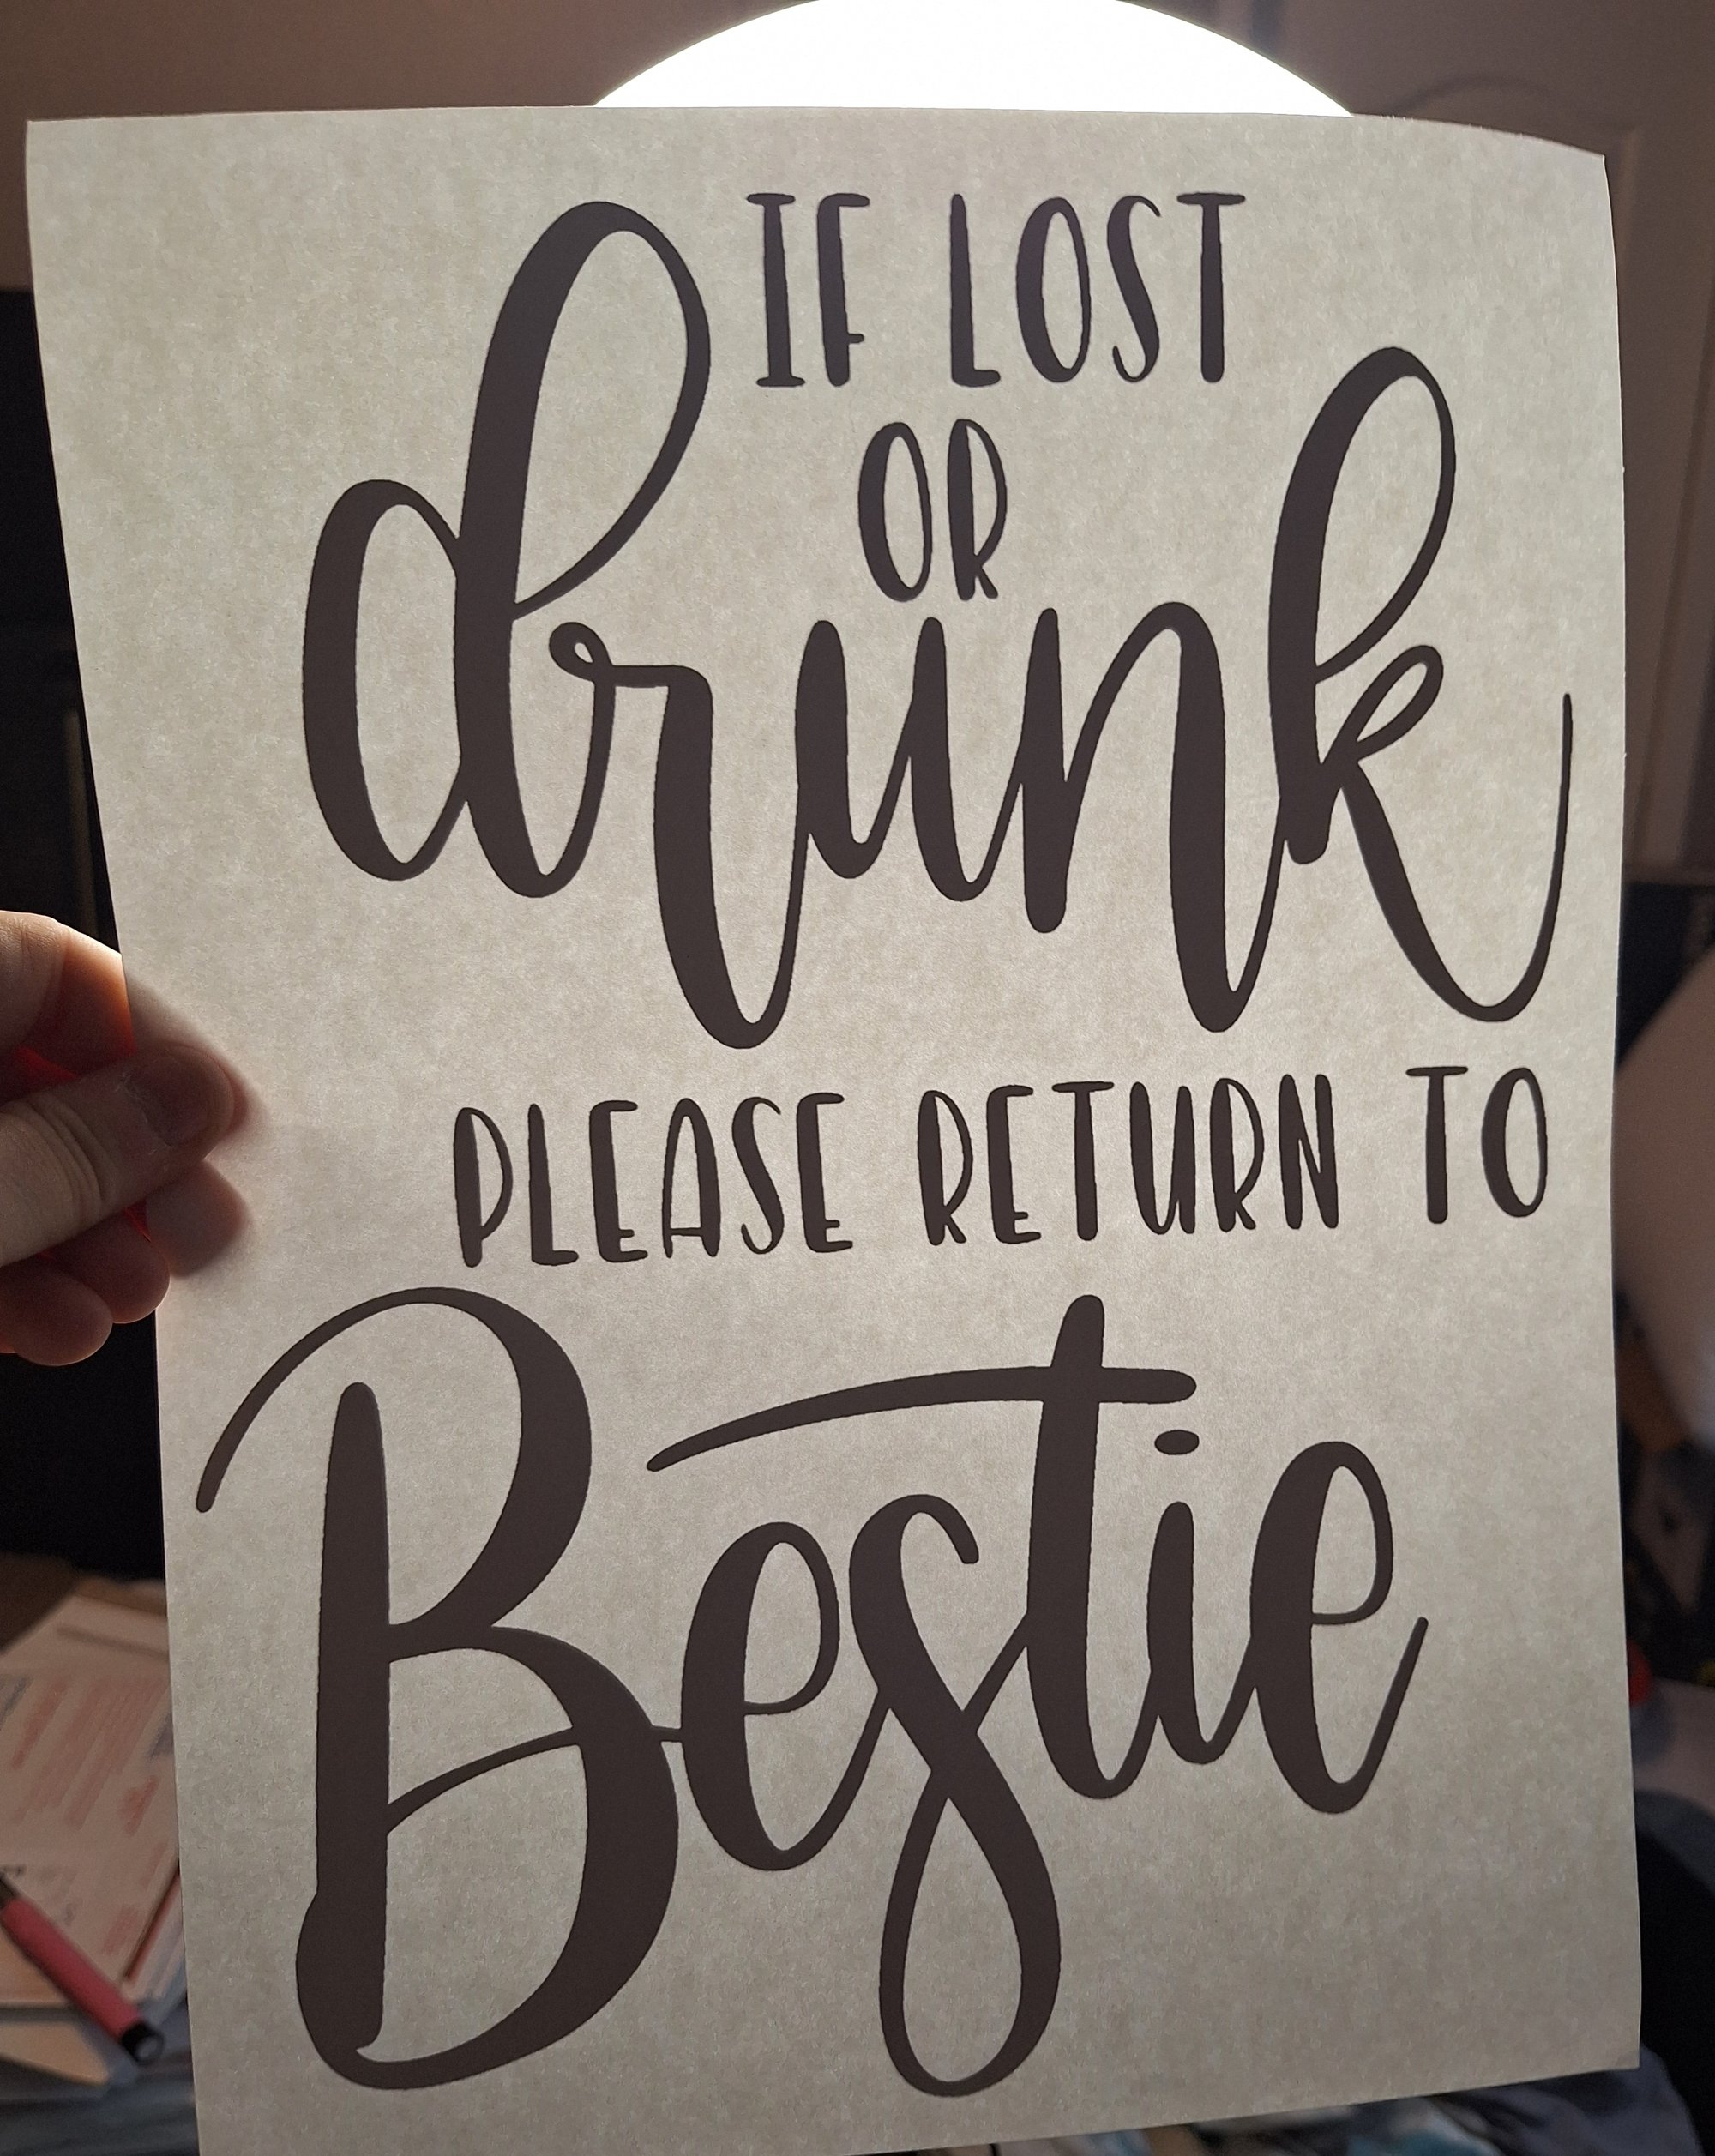 IF LOST
OR
drunk
PLEASE RETURN TO
Bestie